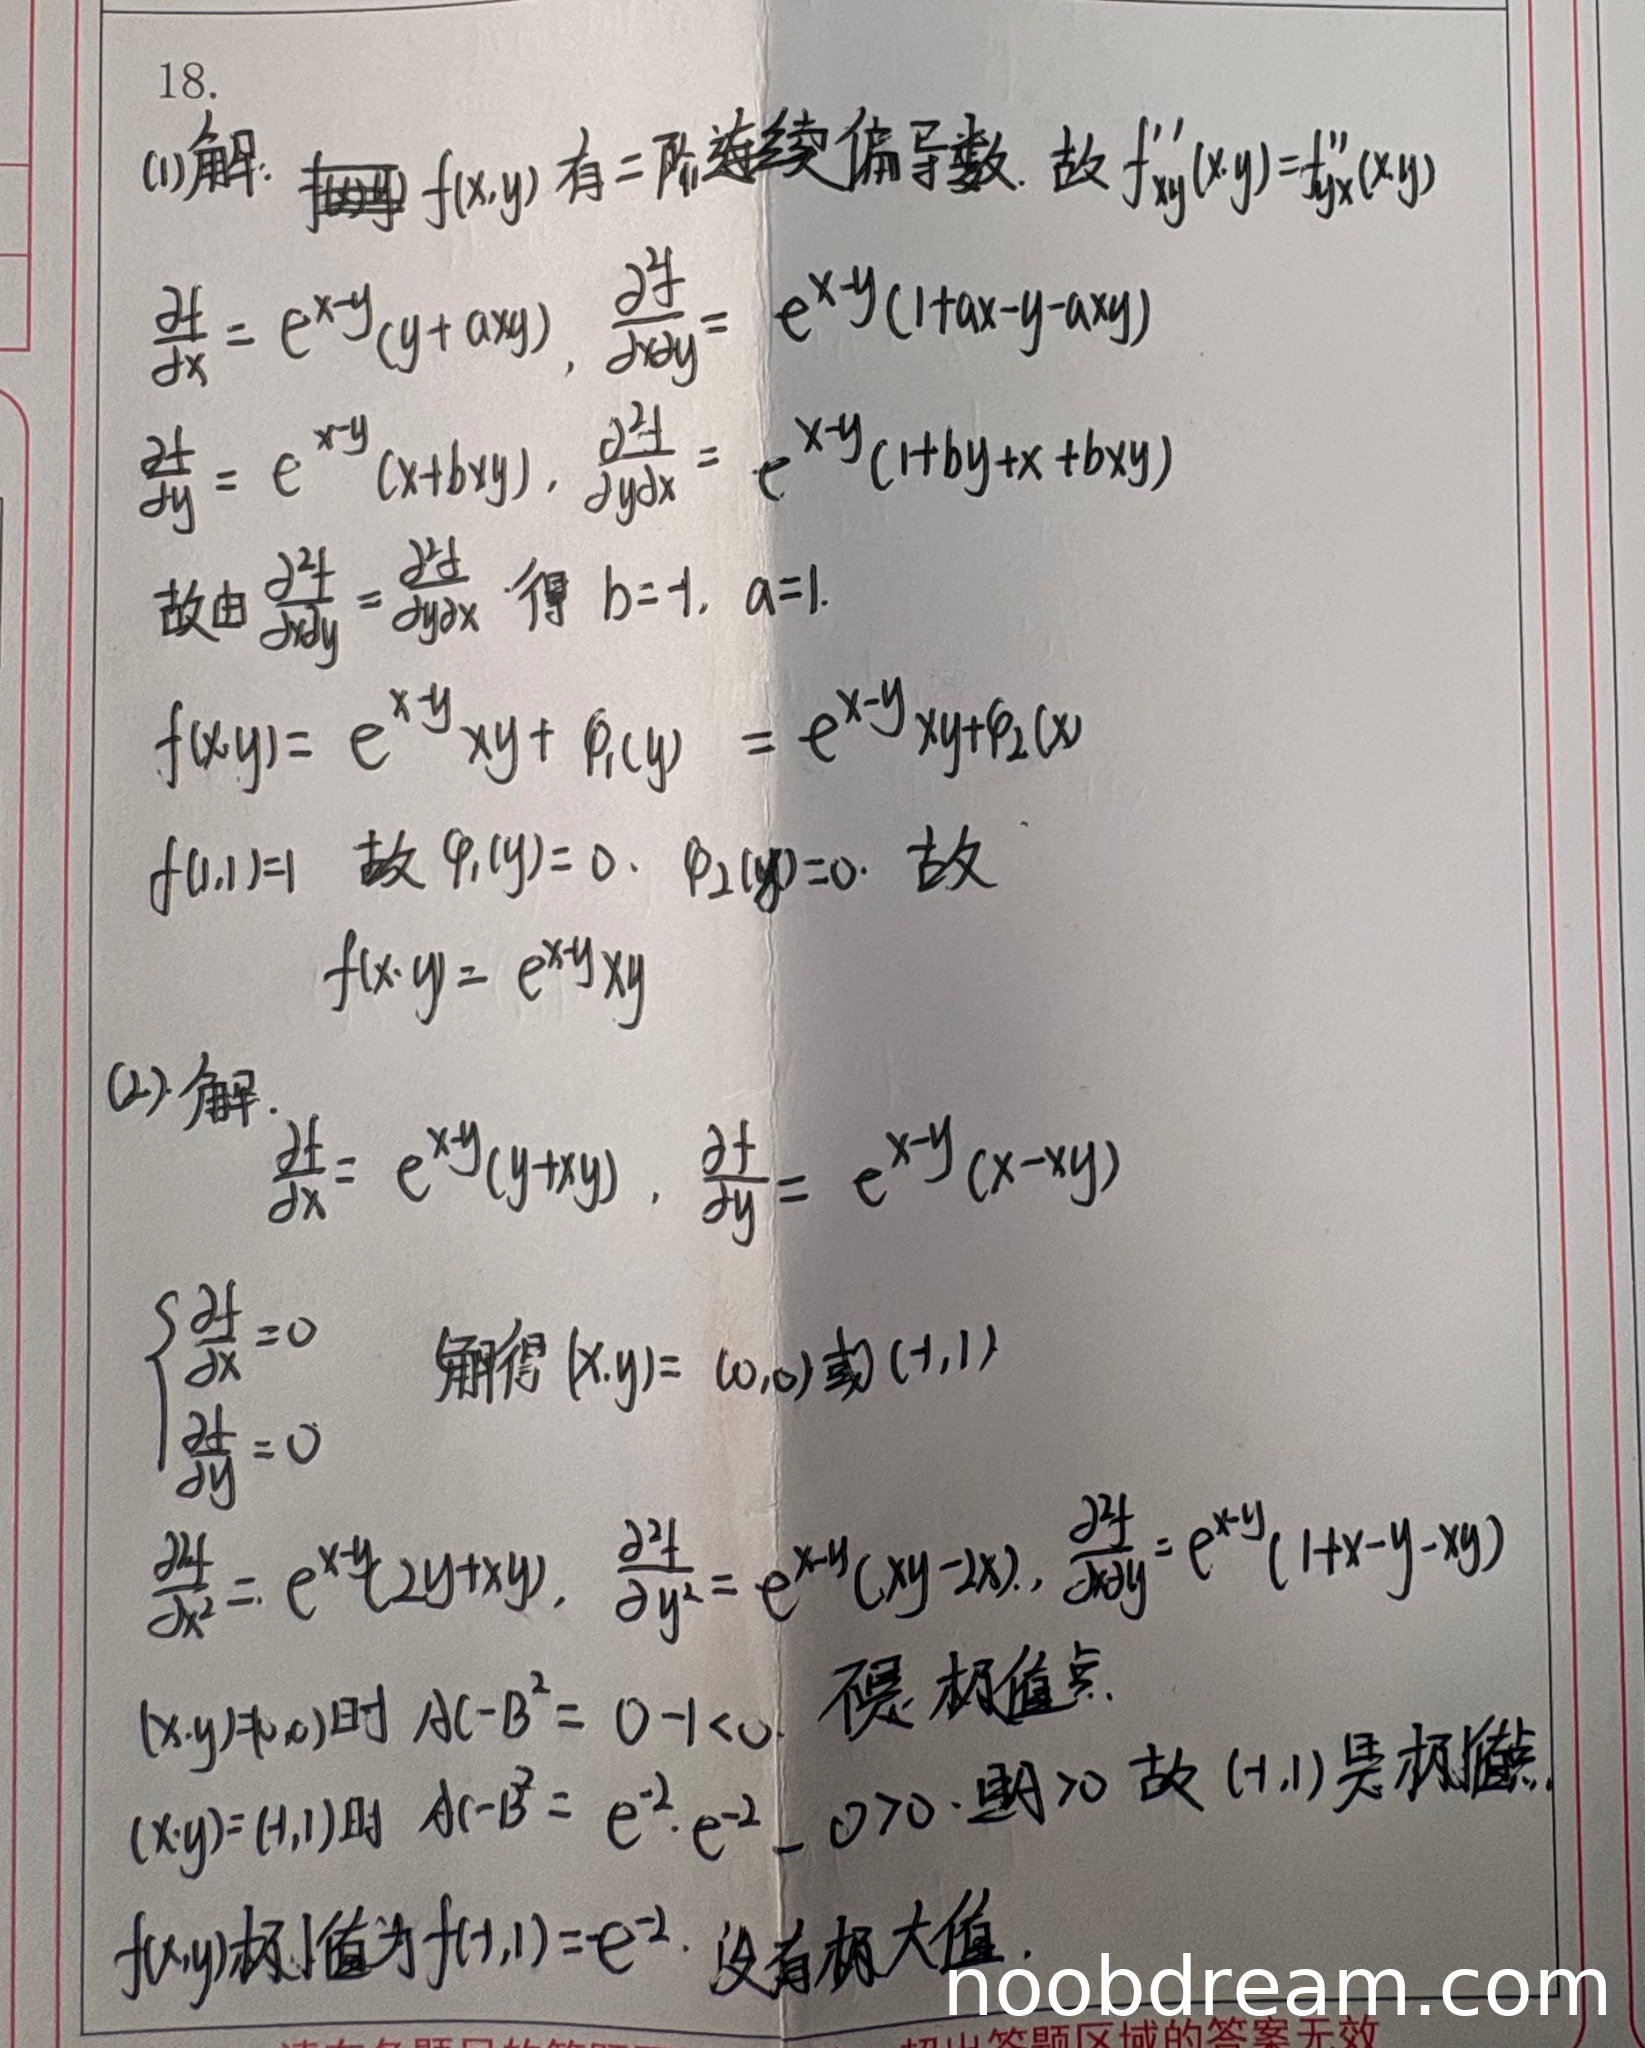 18.
(1)解: f(x,y)有二阶连续偏导数. 故 f''xy(x,y)=f''yx(x,y)
∂f/∂x = e^{x-y}(y+axy), ∂²f/∂x∂y = e^{x-y}(1+ax-y-axy)
∂f/∂y = e^{x-y}(x+bxy), ∂²f/∂y∂x = e^{x-y}(1+by+x+bxy)
故由 ∂²f/∂x∂y = ∂²f/∂y∂x 得 b=-1, a=1.
f(x,y)= e^{x-y}xy+φ₁(y) = e^{x-y}xy+φ₂(x)
f(1,1)=1 故 φ₁(y)=0. φ₂(y)=0. 故
f(x,y)= e^{x-y}xy
(2)解.
∂f/∂x = e^{x-y}(y+xy), ∂f/∂y = e^{x-y}(x-xy)
{∂f/∂x=0
解得 (x,y)= (0,0)或(-1,1)
∂f/∂y=0
∂²f/∂x² = e^{x-y}(2y+xy), ∂²f/∂y² = e^{x-y}(xy-2x), ∂²f/∂x∂y = e^{x-y}(1+x-y-xy)
(x,y)=(0,0)时 AC-B² = 0-1<0. 不是极值点.
(x,y)=(-1,1)时 AC-B² = e^{-2}·e^{-2} - 0>0. 且A>0 故(-1,1)是极小值点.
f(x,y)极小值为f(-1,1)=-e^{-2}. 没有极大值.
noobdream.com
超出答题区域的答案无效